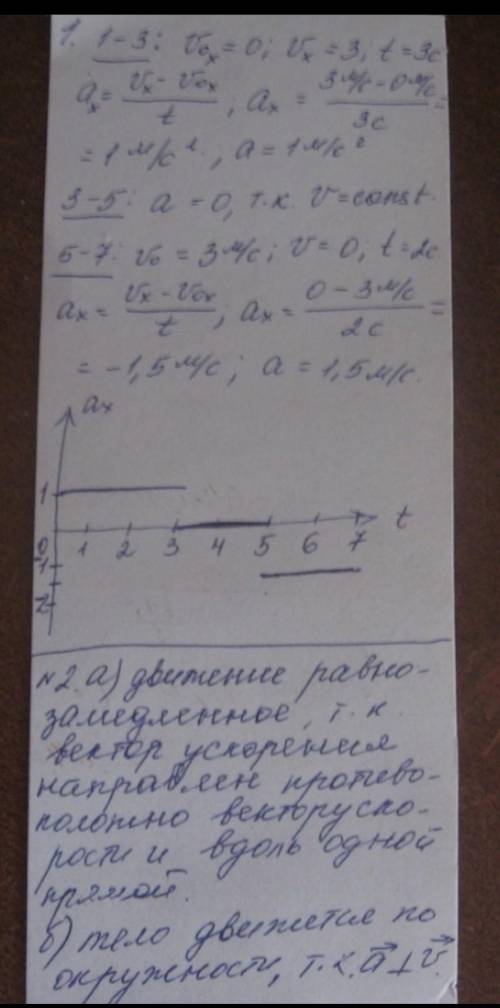 1. 1-3: v₀ₓ = 0; vₓ = 3; t = 3с
aₓ = (vₓ - v₀ₓ)/t, aₓ = (3 м/с - 0 м/с)/3с =
= 1 м/с². , a = 1 м/с²
3-5: a = 0, т.к. v = const.
5-7: v₀ = 3 м/с; v = 0; t = 2с
aₓ = (vₓ - v₀ₓ)/t; aₓ = (0 - 3 м/с)/2с =
= -1,5 м/с; a = 1,5 м/с.
aₓ
1
0 1 2 3 4 5 6 7 t
-1
-2
№2. а) движение равно-
замедленное, т.к
вектор ускорения
направлен противо-
положно вектору ско-
рости и вдоль одной
прямой.
б) тело движется по
окружности, т.к. a⃗ ⊥ v⃗.